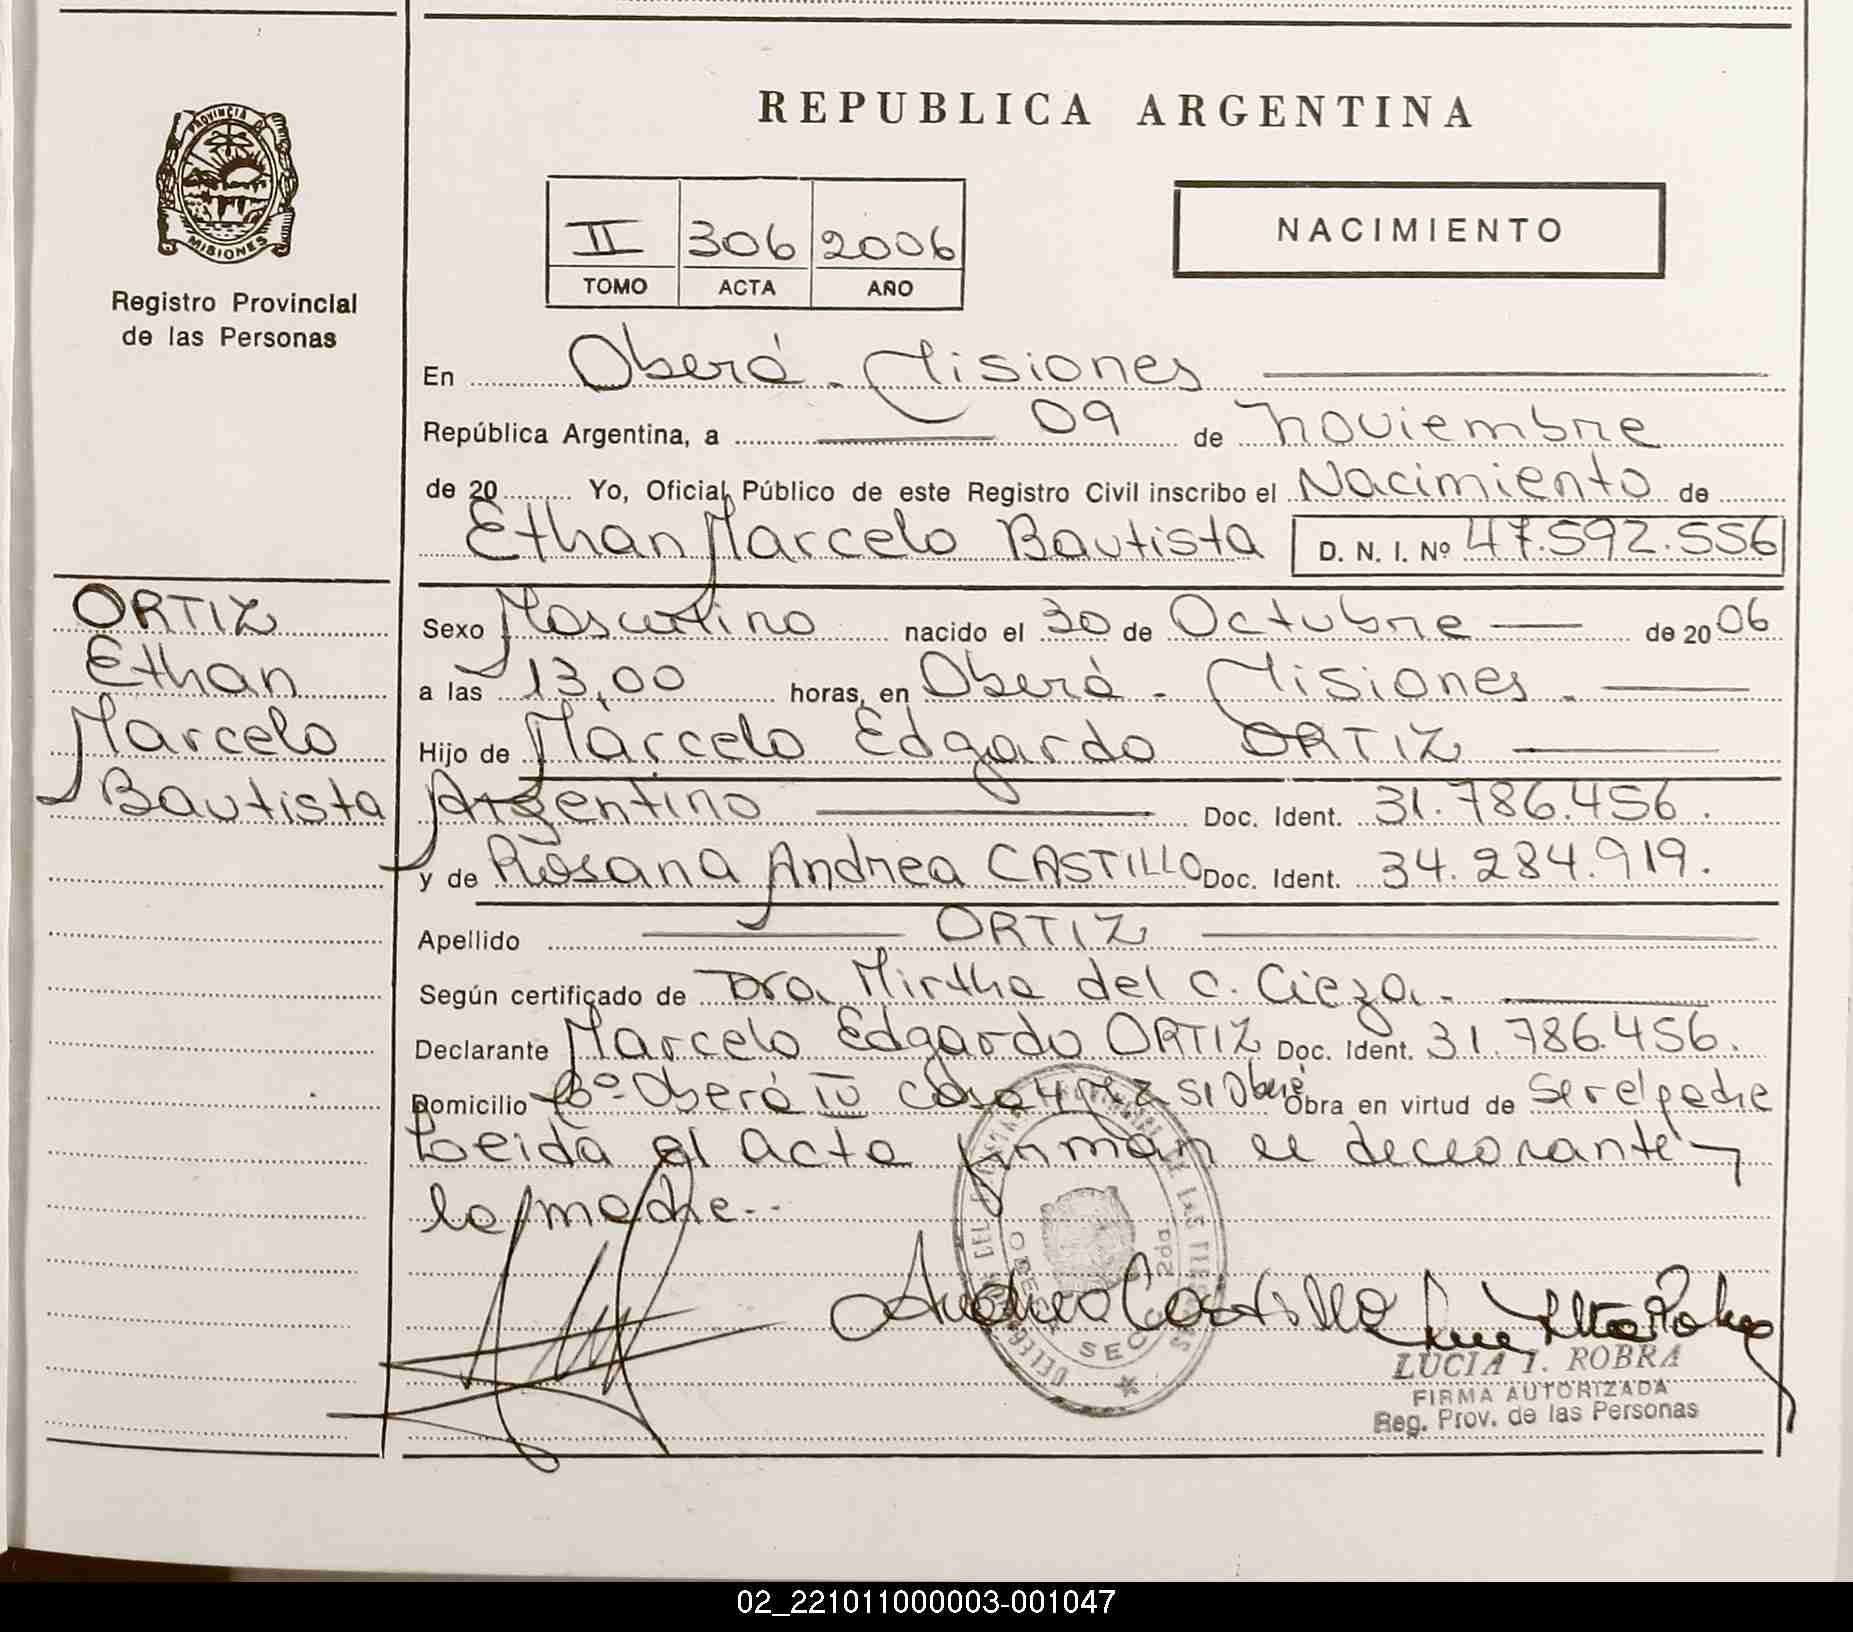 REPUBLICA ARGENTINA
PROVINCIA DE
MISIONES
Registro Provincial
de las Personas
II 306 2006
TOMO ACTA AÑO
NACIMIENTO
En Oberá - Misiones
República Argentina, a 09 de noviembre
de 20 Yo, Oficial Público de este Registro Civil inscribo el Nacimiento de
Ethan Marcelo Bautista D. N. I. Nº 47.592.556
ORTIZ
Ethan
Marcelo
Bautista
Sexo Masculino nacido el 30 de Octubre de 2006
a las 13,00 horas, en Oberá - Misiones -
Hijo de Marcelo Edgardo ORTIZ
Argentino Doc. Ident. 31.786.456.
y de Rosana Andrea CASTILLO Doc. Ident. 34.284.919.
Apellido ORTIZ
Según certificado de Dra. Mirtha del C. Cieza.-
Declarante Marcelo Edgardo ORTIZ Doc. Ident. 31.786.456.
Domicilio Bº Oberá IV Casa Obra en virtud de ser el padre
Leida el acta firman el declarante y
la madre.-
Andrea Castillo
SECC 2da
LUCIA I. ROBRA
FIRMA AUTORIZADA
Reg. Prov. de las Personas
02_221011000003-001047